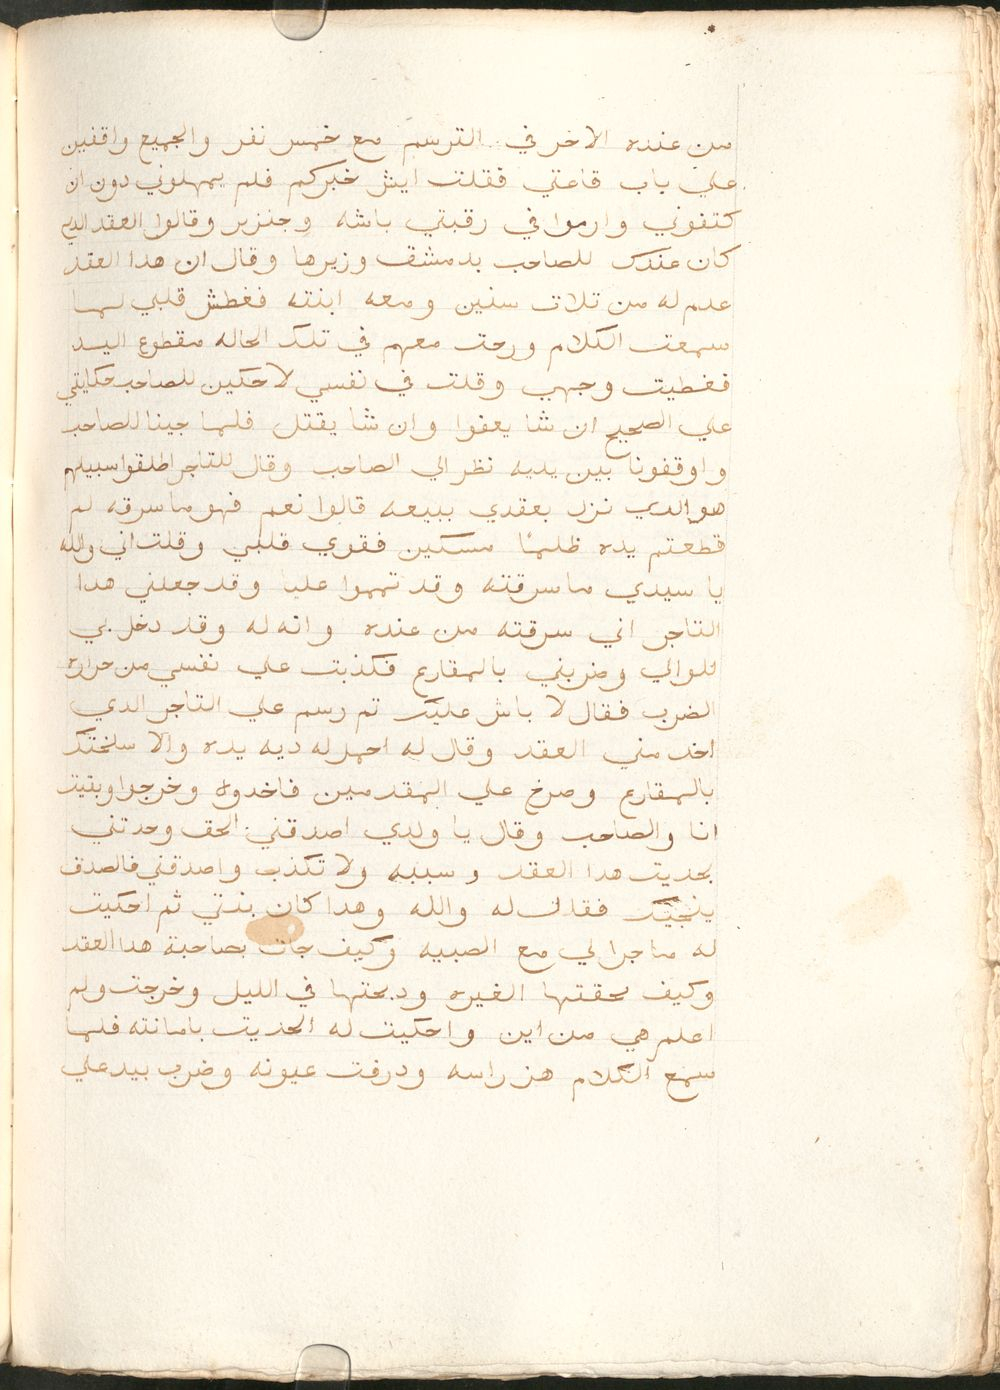 من عنده الاخر في الترسم مع خمس نفر والجميع واقفين
علي باب قاعتي فقلت ايش خبركم فلم يمهلوني دون ان
كتفوني وارموا في رقبتي باشه وجنزير وقالوا العقد الدي
كان عندك للصاحب بدمشق وزيرها وقال ان هدا العقد
عدم له من تلات سنين ومعه ابنته فغطش قلبي لما
سمعت الكلام ورحت معهم في تلك الحاله مقطوع اليد
فغطيت وجهي وقلت في نفسي لاحكين للصاحب حكايتي
علي الصحيح ان شا يعفوا وان شا يقتل فلما جينا للصاحب
واوقفونا بين يديه نظر الي الصاحب وقال للتاجر اطلقوا سبيلهم
هو الدي نزل بعقدي يبيعه قالوا نعم فهو ما سرقه لم
قطعتم يده ظلمًا مسكين فقوي قلبي وقلت اني والله
يا سيدي ما سرقته وقد تمموا عليا وقد جعلني هدا
التاجر اني سرقته من عنده وانه له وقد دخل بي
للوالي وضربني بالمقارع فكذبت علي نفسي من حراره
الضرب فقال لا باش عليك تم رسم علي التاجر الدي
اخد مني العقد وقال له احمل له ديه يده والا سلختك
بالمقارع وصرخ علي المقدمين فاخدوه وخرجوا وبقيت
انا والصاحب وقال يا ولدي اصدقني الحق وحدتني
بحديت هدا العقد وسببه ولا تكذب واصدقني فالصدق
ينجيك فقال له والله وهدا كان بنتي ثم احكيت
له ما جرا لي مع الصبيه وكيف جات بصاحبة هدا العقد
وكيف لحقتها الغيره ودبحتها في الليل وخرجت ولم
اعلم هي من اين واحكيت له الحديت بامانته فلما
سمع الكلام هز راسه ودرفت عيونه وضرب بيد علي